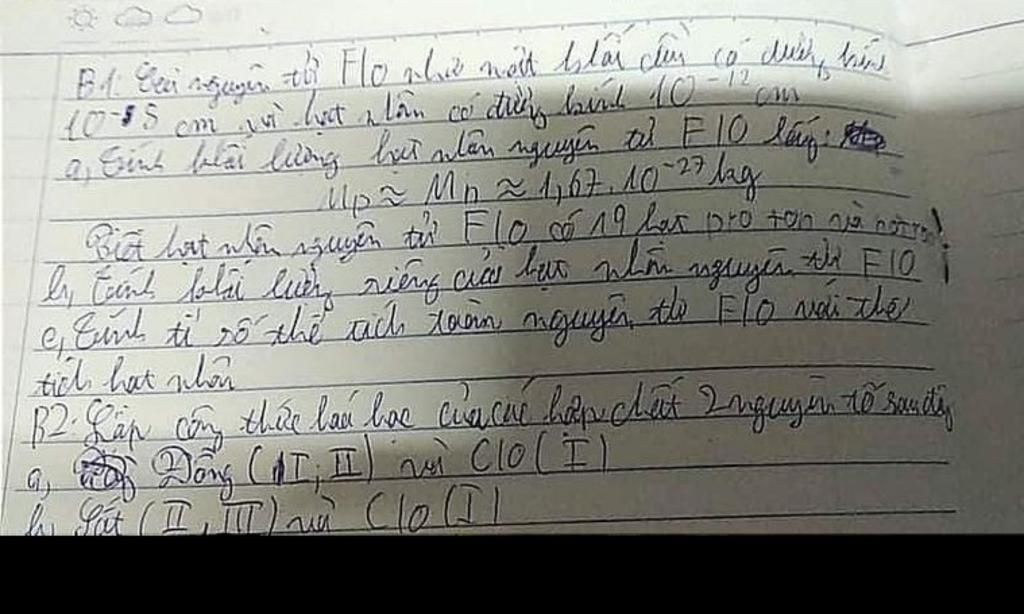 B1. Coi nguyên tử Flo như một khối cầu có đường kính
10⁻⁸ cm và hạt nhân có đường kính 10⁻¹² cm
a, Tính khối lượng hạt nhân nguyên tử FlO lấy:
Mp ≈ Mn ≈ 1,67. 10⁻²⁷ kg
Biết hạt nhân nguyên tử FlO có 19 hạt proton và nơtron
b, Tính khối lượng riêng của hạt nhân nguyên tử FlO
c, Tính tỉ số thể tích toàn nguyên tử FlO với thể
tích hạt nhân
B2. Lập công thức hoá học của các hợp chất 2 nguyên tố sau đây
a, Đồng (I, II) và ClO (I)
b, Sắt (II, III) và ClO (I)